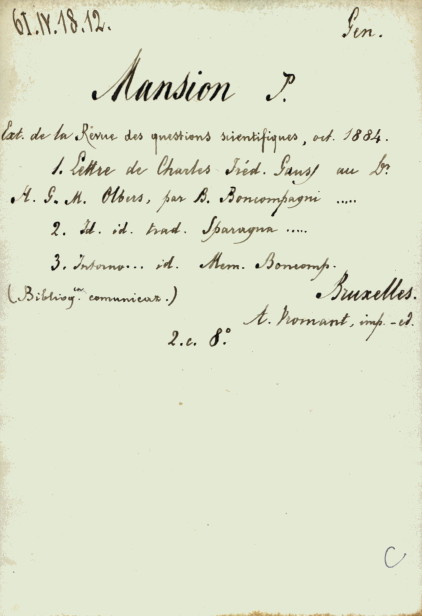 61.IV.18.12.
Gen.
Mansion P.
Ext. de la Revue des questions scientifiques, oct. 1884.
1. Lettre de Charles Fréd. Gauss au Dr.
H. G. M. Olbers, par B. Boncompagni .....
2. Id. id. trad. Sparagna .....
3. Intorno... id. Mem. Boncomp.
(Bibliogr. comunicaz.)
Bruxelles.
A. Vromant, imp.-ed.
2.c. 8.º
C